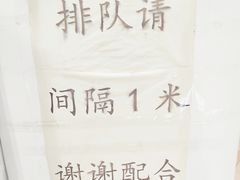 排队请
间隔1米
谢谢配合